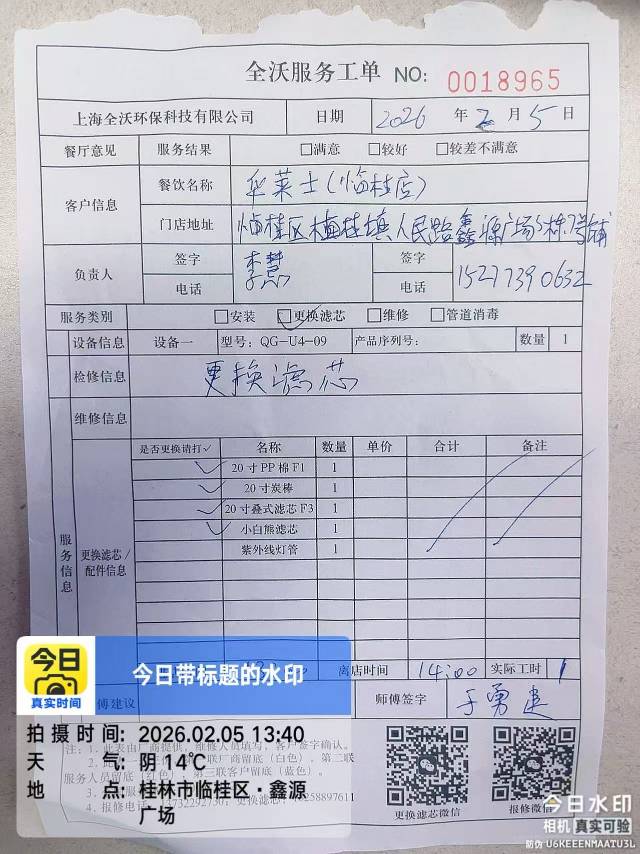 全沃服务工单 NO: 0018965
上海全沃环保科技有限公司 日期 2026 年 2 月 5 日
餐厅意见 服务结果 □满意 □较好 □较差不满意
客户信息 餐饮名称 华莱士(临桂店)
门店地址 临桂区临桂镇人民路鑫源广场5栋7号铺
负责人 签字 李慧 签字
电话 电话 15277390632
服务类别 □安装 □更换滤芯 □维修 □管道消毒
设备信息 设备一 型号: QG-U4-09 产品序列号: 数量 1
检修信息 更换滤芯
维修信息
服务信息 更换滤芯/配件信息
是否更换请打✓ 名称 数量 单价 合计 备注
✓ 20寸PP棉F1 1
✓ 20寸炭棒 1
✓ 20寸叠式滤芯F3 1
✓ 小白熊滤芯 1
紫外线灯管 1
离店时间 14:00 实际工时 1
傅建议 师傅签字
注: 1. 此表由厂商提供, 维修人员填写, 客户签字确认。
联厂商留底(白色), 第二联
服务人员留底(红色), 第三联客户留底(蓝色)。
4. 报修电话: 13732292730
58897611
更换滤芯微信 报修微信
今日
真实时间
今日带标题的水印
拍摄时间: 2026.02.05 13:40
天 气: 阴 14℃
地 点: 桂林市临桂区·鑫源广场
今日水印
相机 真实可验
防伪 U6KEEENMAATU3L